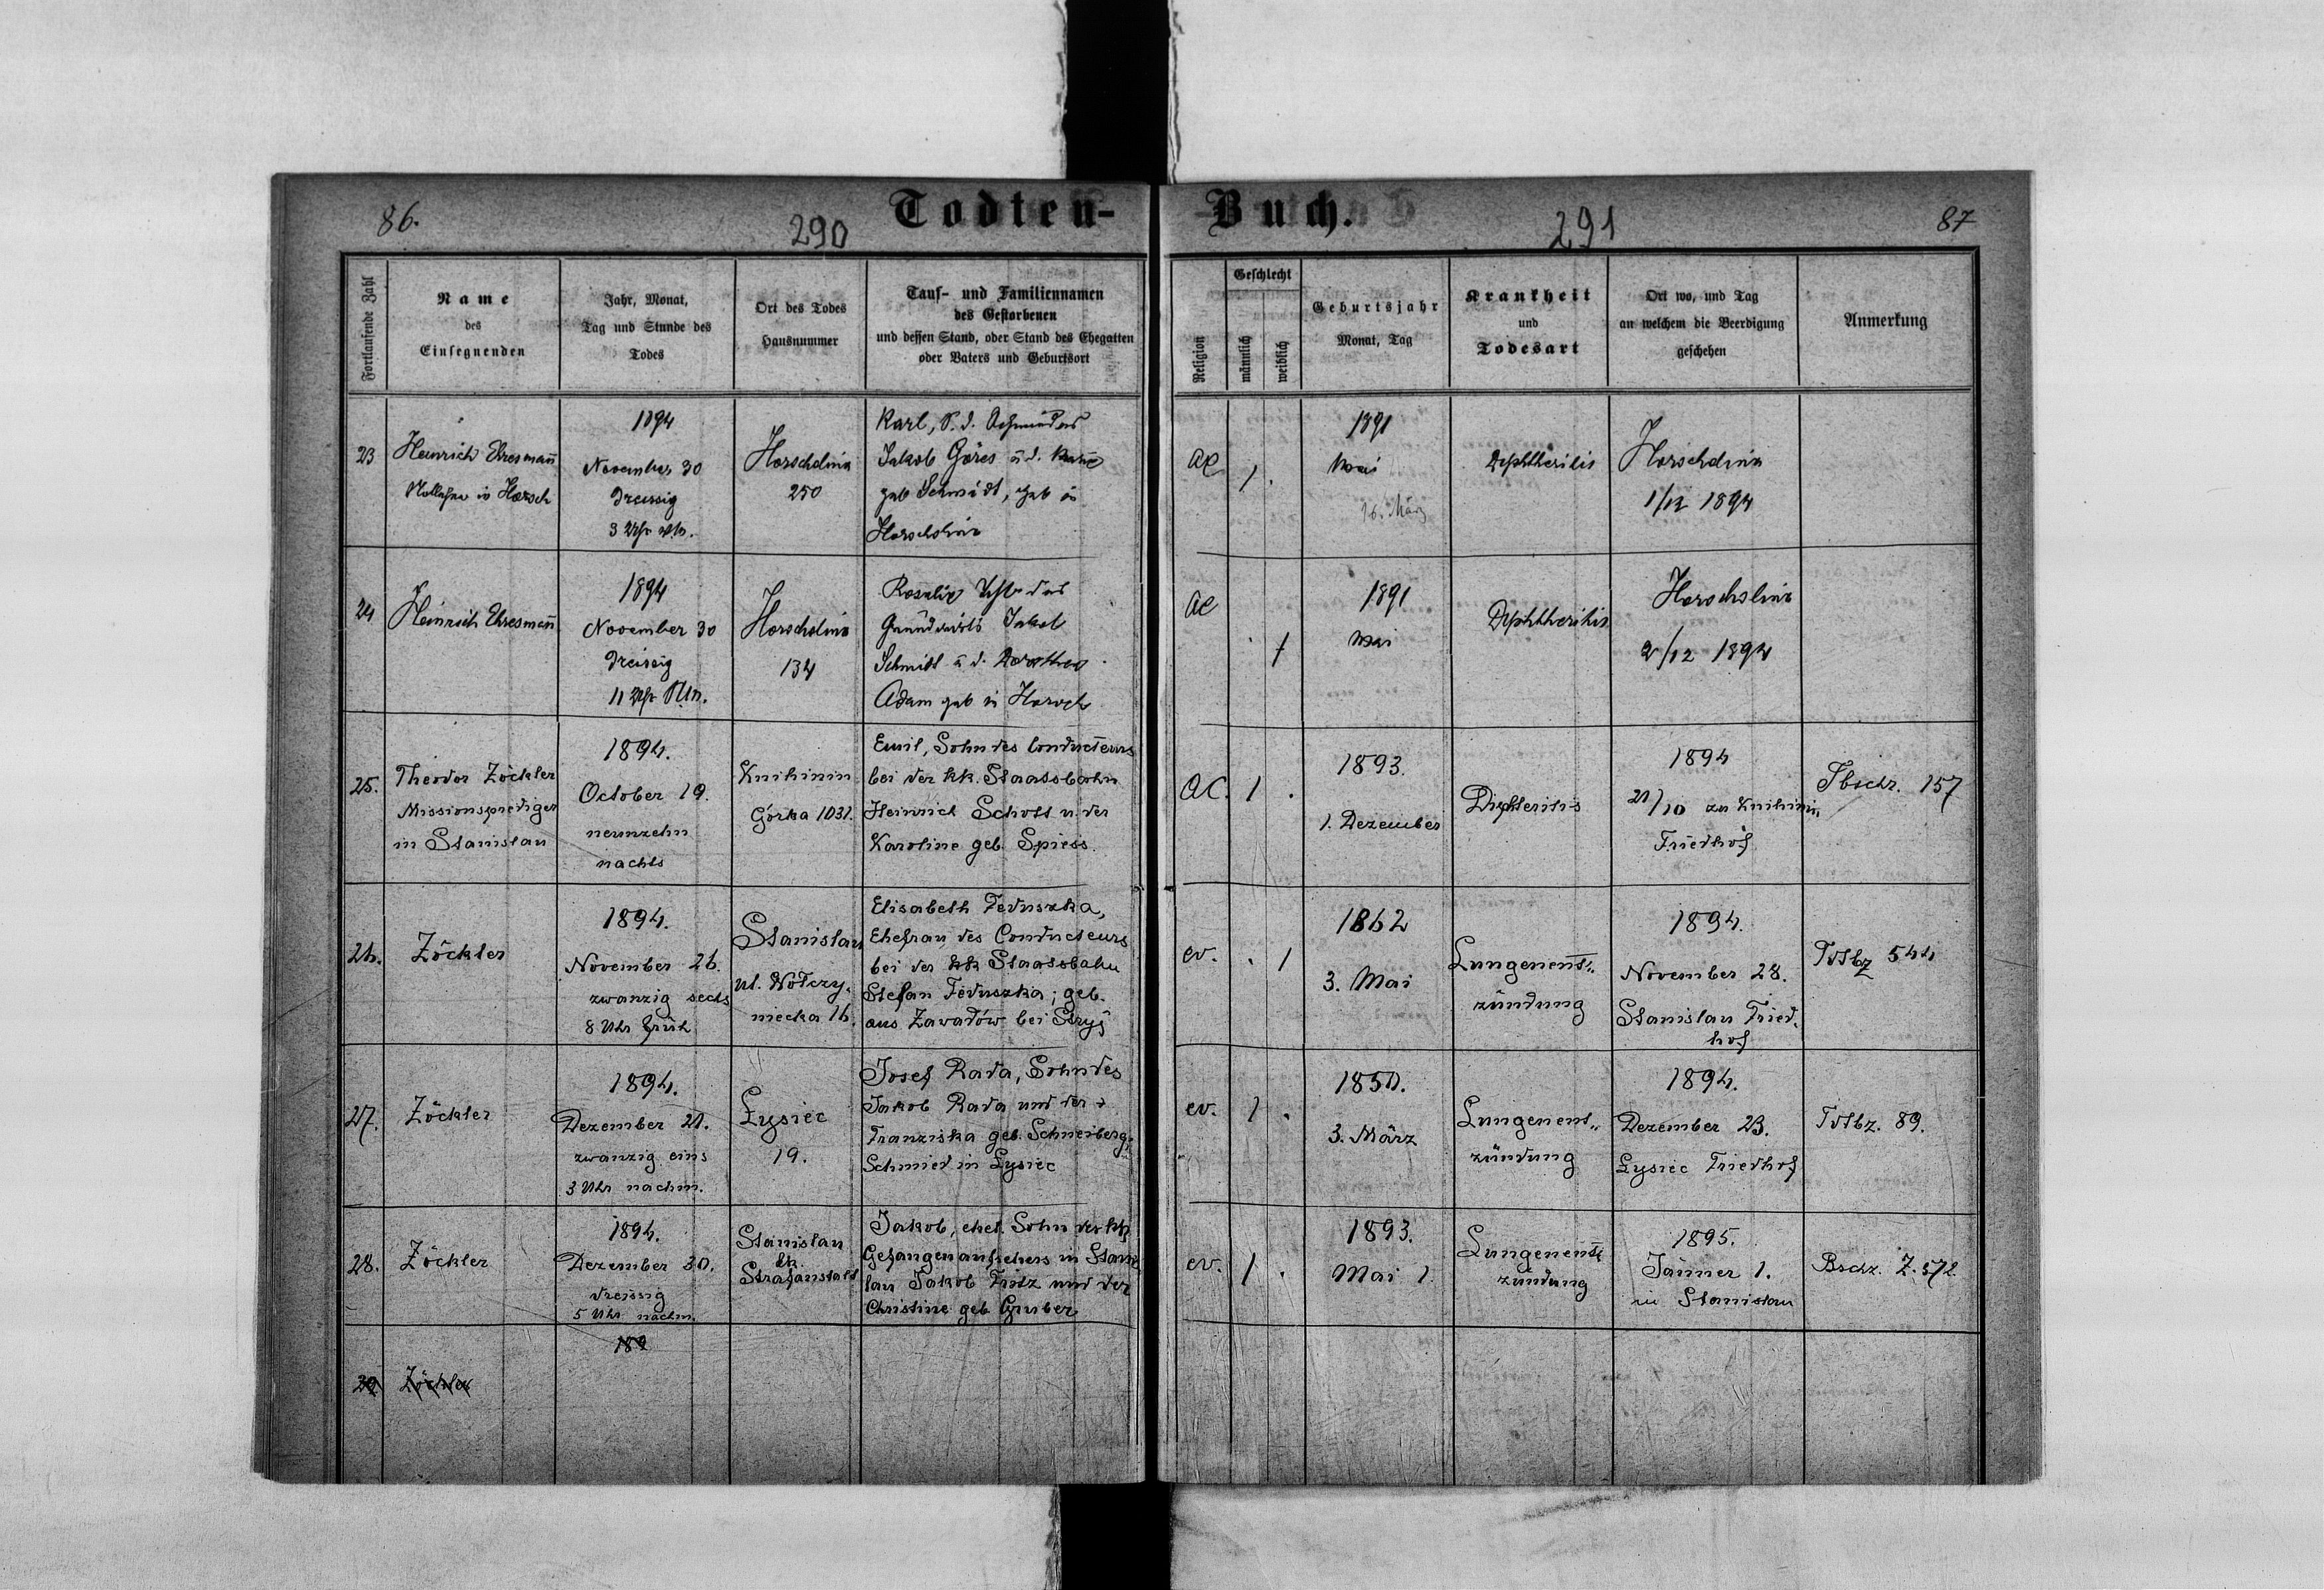 86.
290
Todten-
Buch.
291
87
Fortlaufende Zahl
Name
des
Einsegnenden
Jahr, Monat,
Tag und Stunde des
Todes
Ort des Todes
Hausnummer
Tauf- und Familiennamen
des Gestorbenen
und dessen Stand, oder Stand des Ehegatten
oder Vaters und Geburtsort
Religion
Geschlecht
männlich
weiblich
Geburtsjahr
Monat, Tag
Krankheit
und
Todesart
Ort wo, und Tag
an welchem die Beerdigung
geschehen
Anmerkung
23
Heinrich Ehresmañ
in Horsch
1894
November 30
Dreissig
3 Uhr
Horschdina
250
Karl, S. d. Schmiedes
Jakob Göres u. d.
geb Schmidt, geb in
AC
1 .
1891
Mai
16. März
Diphtheritis
1/12 1894
24
Heinrich Ehresmañ
1894
November 30
Dreissig
11 Uhr
134
Rosalia des
Grundwirts Jakob
Schmidt u. d. Dorothea
Adam geb in Horoch
AC
. 1
1891
Mai
Diphtheritis
2/12 1894
25.
Theodor Zöckler
Missionsprediger
in Stanislau
1894.
October 19.
neunzehn
nachts
Knihinin
Górka 1031.
Emil, Sohn des Conducteurs
bei der kk. Staatsbahn
Heinrich Schott u. der
Karoline geb. Spiess.
AC.
1 .
1893.
1. Dezember
Diphteritis
1894
21/10 zu Knihinin
Friedhof
Tbschz. 157
26.
Zöckler
1894.
November 26.
zwanzig sechs
8 Uhr früh
Stanislau
ul. Wołczy-
niecka 16.
Elisabeth Feduszka,
Ehefrau des Conducteurs
bei der kk Staatsbahn
Stefan Feduszka; geb.
aus Zawadów bei Stryj
ev.
. 1
1862
3. Mai
Lungenent-
zündung
1894.
November 28.
Stanislau Fried-
hof
Tdtbz 544
27.
Zöckler
1894.
Dezember 21.
zwanzig eins
3 Uhr nachm.
Łysiec
19.
Josef Rada, Sohn des
Jakob Rada und der
Franziska geb. Schneiberg,
Schmied in Łysiec
ev.
1 .
1850.
3. März
Lungenent-
zündung
1894.
Dezember 23.
Łysiec Friedhof
Tdtbz. 89.
28.
Zöckler
1894.
Dezember 30.
dreissig
5 Uhr nachm.
Stanislau
kk.
Strafanstalt
Jakob, ehel. Sohn des kk
Gefangenaufsehers in Stanis
lau Jakob Fritz und der
Christine geb Gruber
ev.
1 .
1893.
Mai 1.
Lungenent-
zündung
1895.
Jänner 1.
in Stanislau
Bschz. Z. 572.
29
Zöckler
189